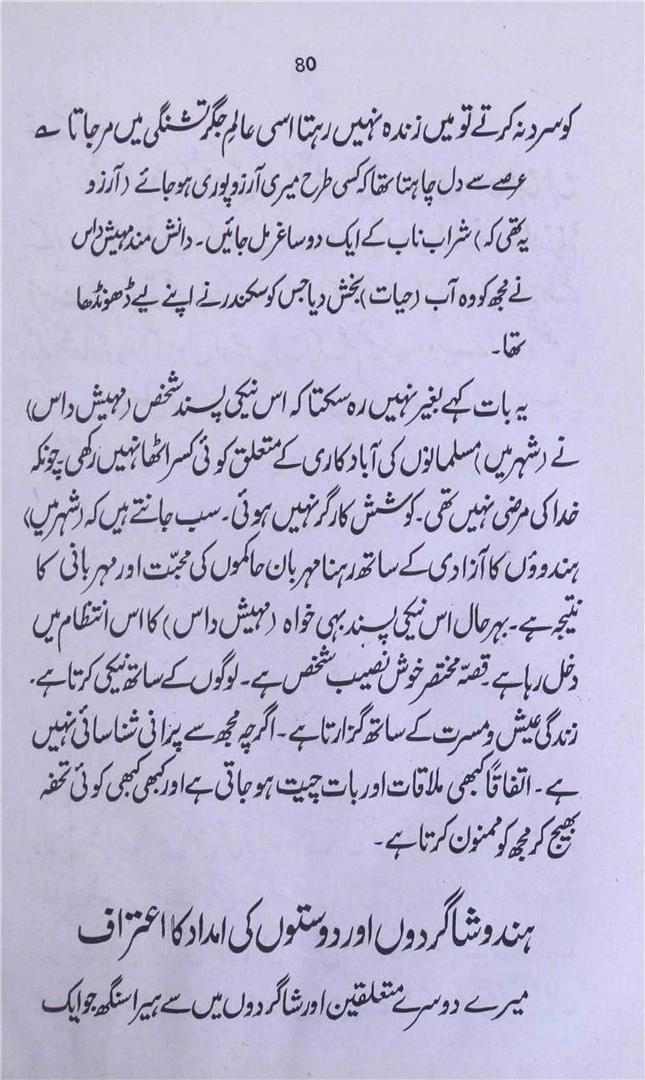 80
کو سرد نہ کرتے تو میں زندہ نہیں رہتا اسی عالمِ جگر تشنگی میں مر جاتا ے
عرصے سے دل چاہتا تھا کہ کسی طرح میری آرزو پوری ہو جائے (آرزو
یہ تھی کہ) شراب ناب کے ایک دو ساغر مل جائیں۔ دانش مند مہیش داس
نے مجھ کو وہ آب (حیات) بخش دیا جس کو سکندر نے اپنے لیے ڈھونڈھا
تھا۔
یہ بات کہے بغیر نہیں رہ سکتا کہ اس نیکی پسند شخص (مہیش داس)
نے (شہر میں) مسلمانوں کی آبادکاری کے متعلق کوئی کسر اٹھا نہیں رکھی۔ چونکہ
خدا کی مرضی نہیں تھی۔ کوشش کارگر نہیں ہوئی۔ سب جانتے ہیں کہ (شہر میں)
ہندوؤں کا آزادی کے ساتھ رہنا مہربان حاکموں کی محبّت اور مہربانی کا
نتیجہ ہے۔ بہرحال اس نیکی پسند بہی خواہ (مہیش داس) کا اس انتظام میں
دخل رہا ہے۔ قصّہ مختصر خوش نصیب شخص ہے۔ لوگوں کے ساتھ نیکی کرتا ہے۔
زندگی عیش و مسرت کے ساتھ گزارتا ہے۔ اگرچہ مجھ سے پرانی شناسائی نہیں
ہے۔ اتفاقاً کبھی ملاقات اور بات چیت ہو جاتی ہے اور کبھی کبھی کوئی تحفہ
بھیج کر مجھ کو ممنون کرتا ہے۔
ہندو شاگردوں اور دوستوں کی امداد کا اعتراف
میرے دوسرے متعلقین اور شاگردوں میں سے ہیرا سنگھ جو ایک